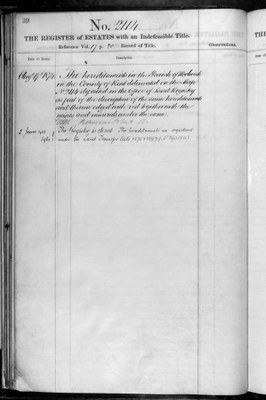 No. 2114
THE REGISTER of ESTATES with an Indefeasible Title.
Reference Vol. 17 p. Record of Title.
Observations.
Date of Entry.
Description.
Augt 19th 1874 The Hereditaments in the Parish of
in the County of Kent delineated on the Map
No 2114 deposited in the Office of Land Registry
as part of the description of the same hereditaments
and therein edged with red together with the
mines and minerals under the same.
The Register is closed. The hereditaments are registered
under the Land Transfer Acts 1875 & 1897